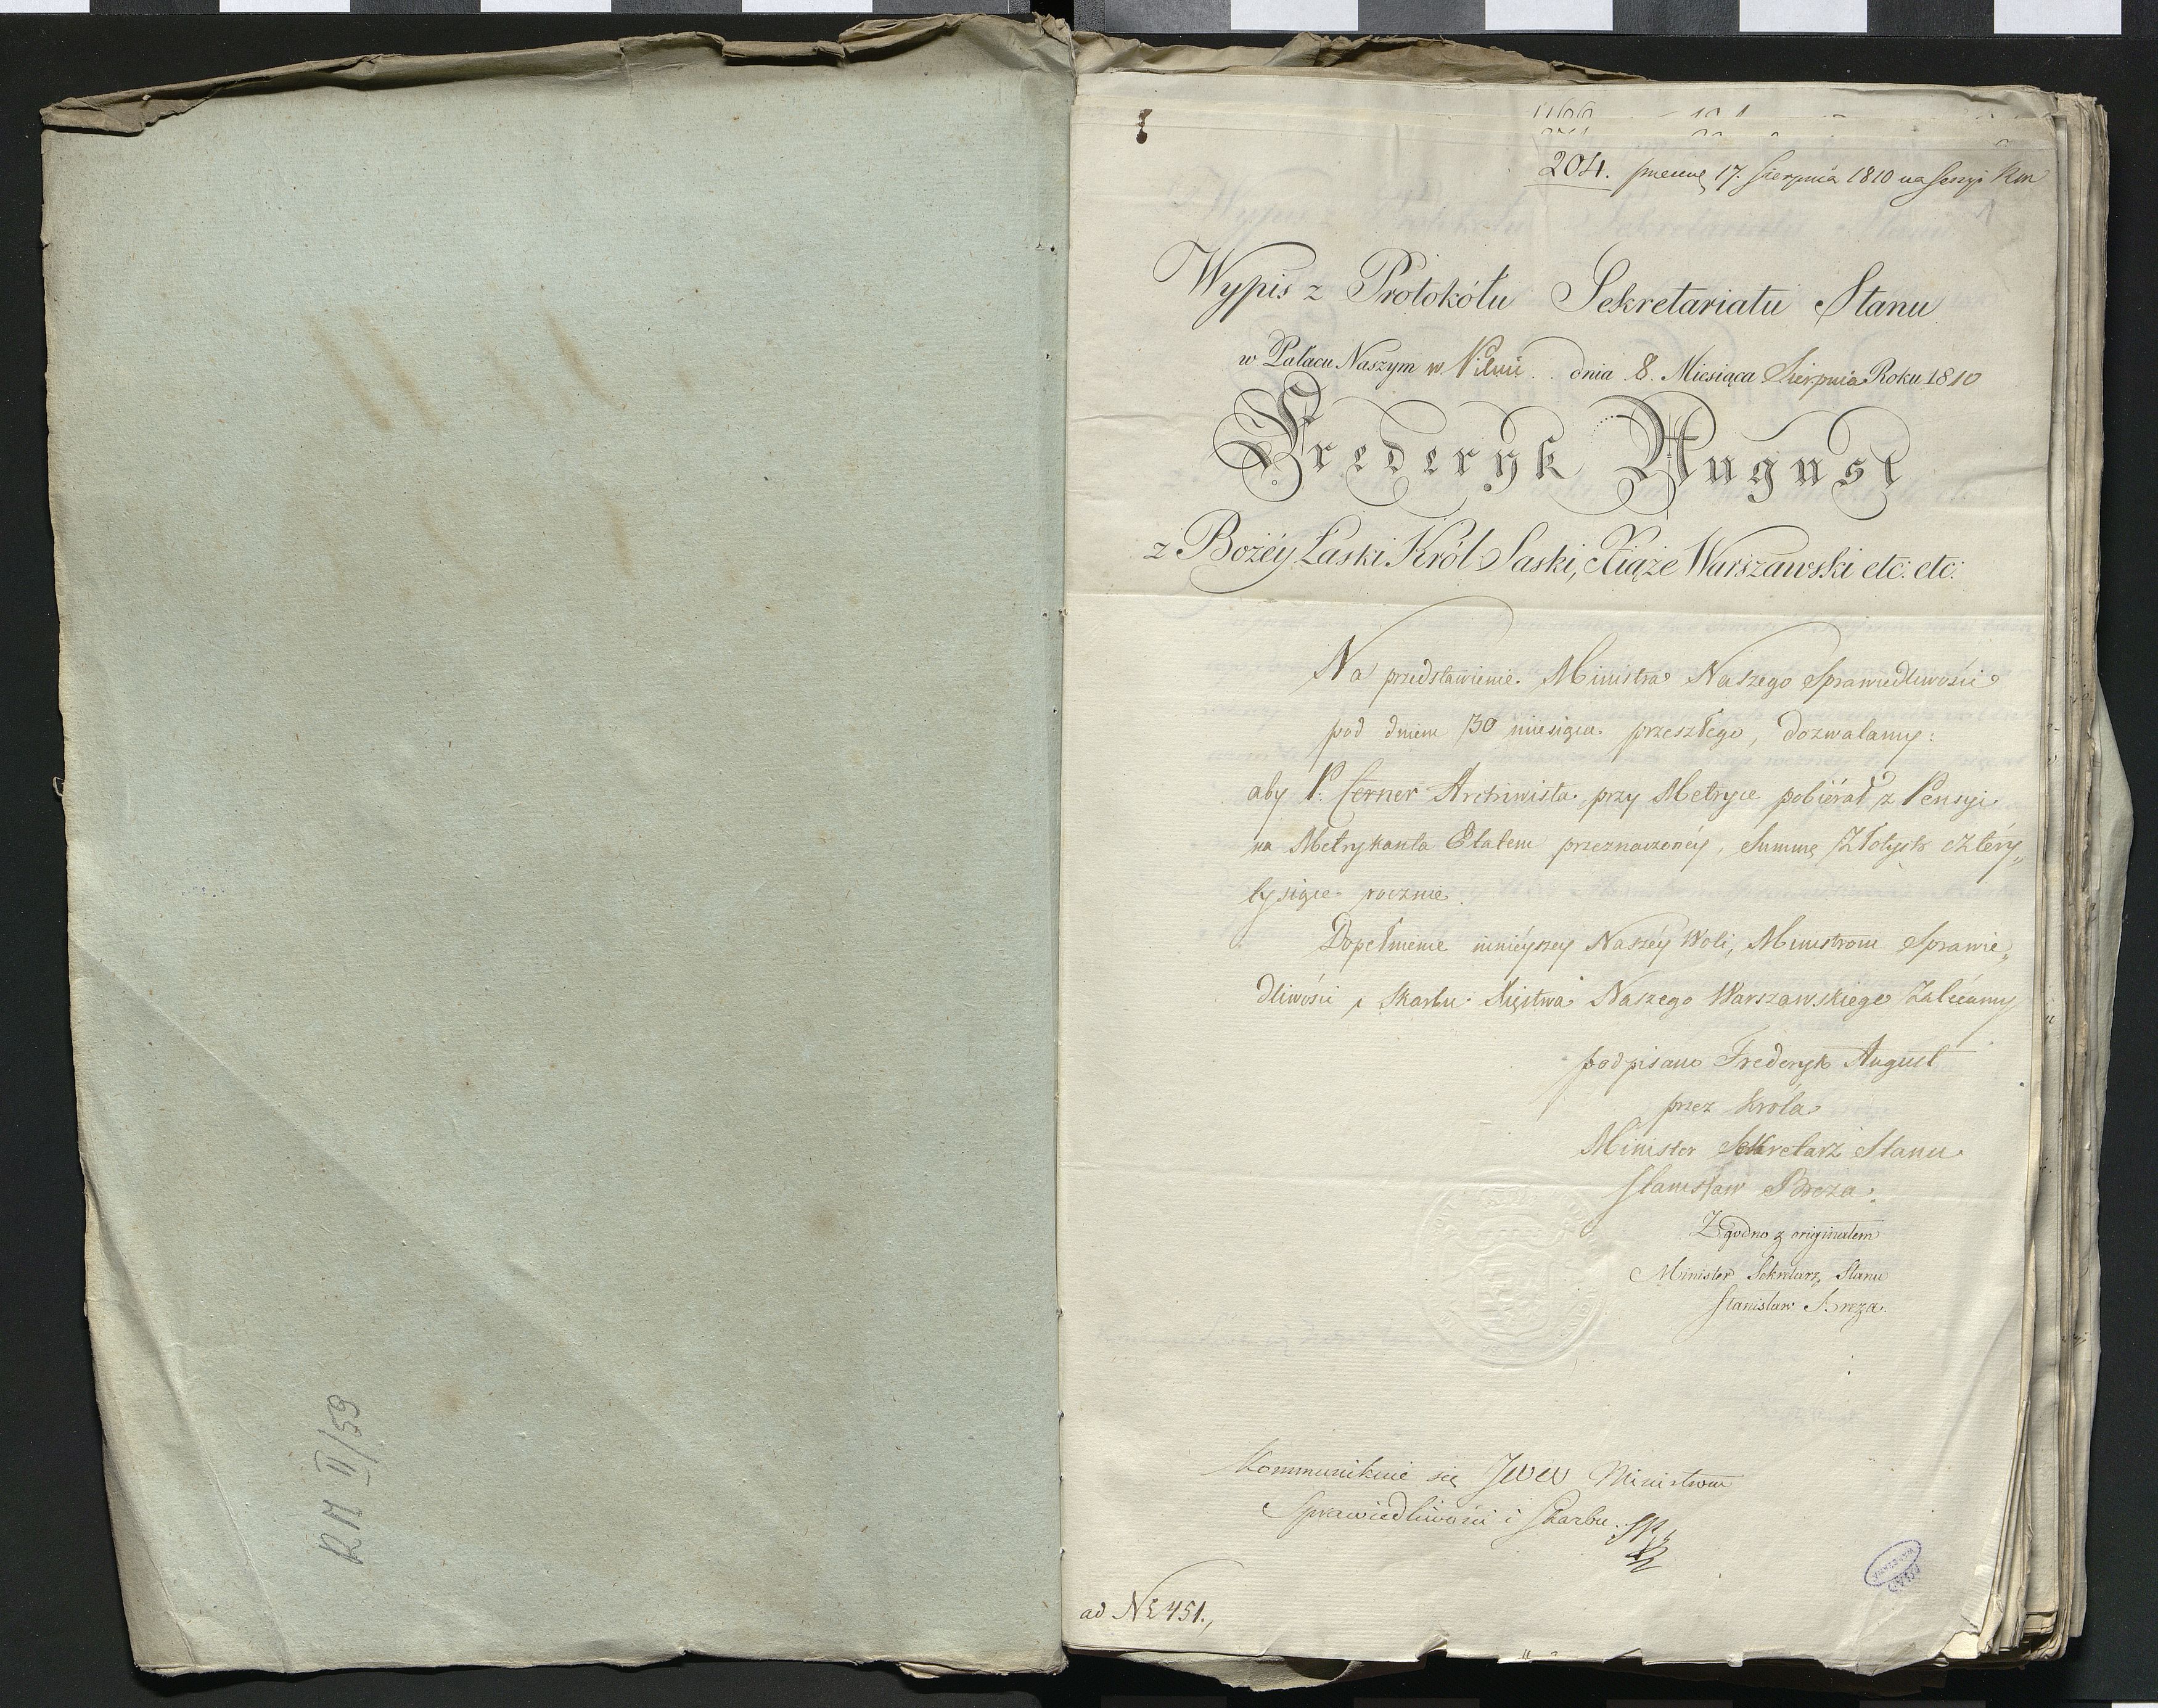 RM II/59
204. 17. Sierpnia 1810 na Sessyi
Wypis z Protokółu Sekretariatu Stanu
w Pałacu Naszym w dnia 8. Miesiąca Sierpnia Roku 1810
Frederyk August
z Bożéy Łaski Król Saski, Xiąże Warszawski etc: etc:
Na przedstawienie Ministra Naszego Sprawiedliwości
pod dniem 30 miesiąca przeszłego, dozwalamy:
aby P. Archiwista przy Metryce pobiérał z Pensyi
na Metrykanta Etatem przeznaczonéy, Summę Złotych cztéry„
tysiące rocznie.
Dopełnienie ninieyszey Naszéy Woli, Ministrom Sprawie„
dliwości i Skarbu Xięstwa Naszego Warszawskiego Zalécamy
podpisano Frederyk August
przez Króla
Minister Sekretarz Stanu
Stanisław Breza.
Zgodno z originałem
Minister Sekretarz Stanu
Stanisław Breza.
Kommunikuie się Ministrom
Sprawiedliwości i Skarbu.
ad № 451.,